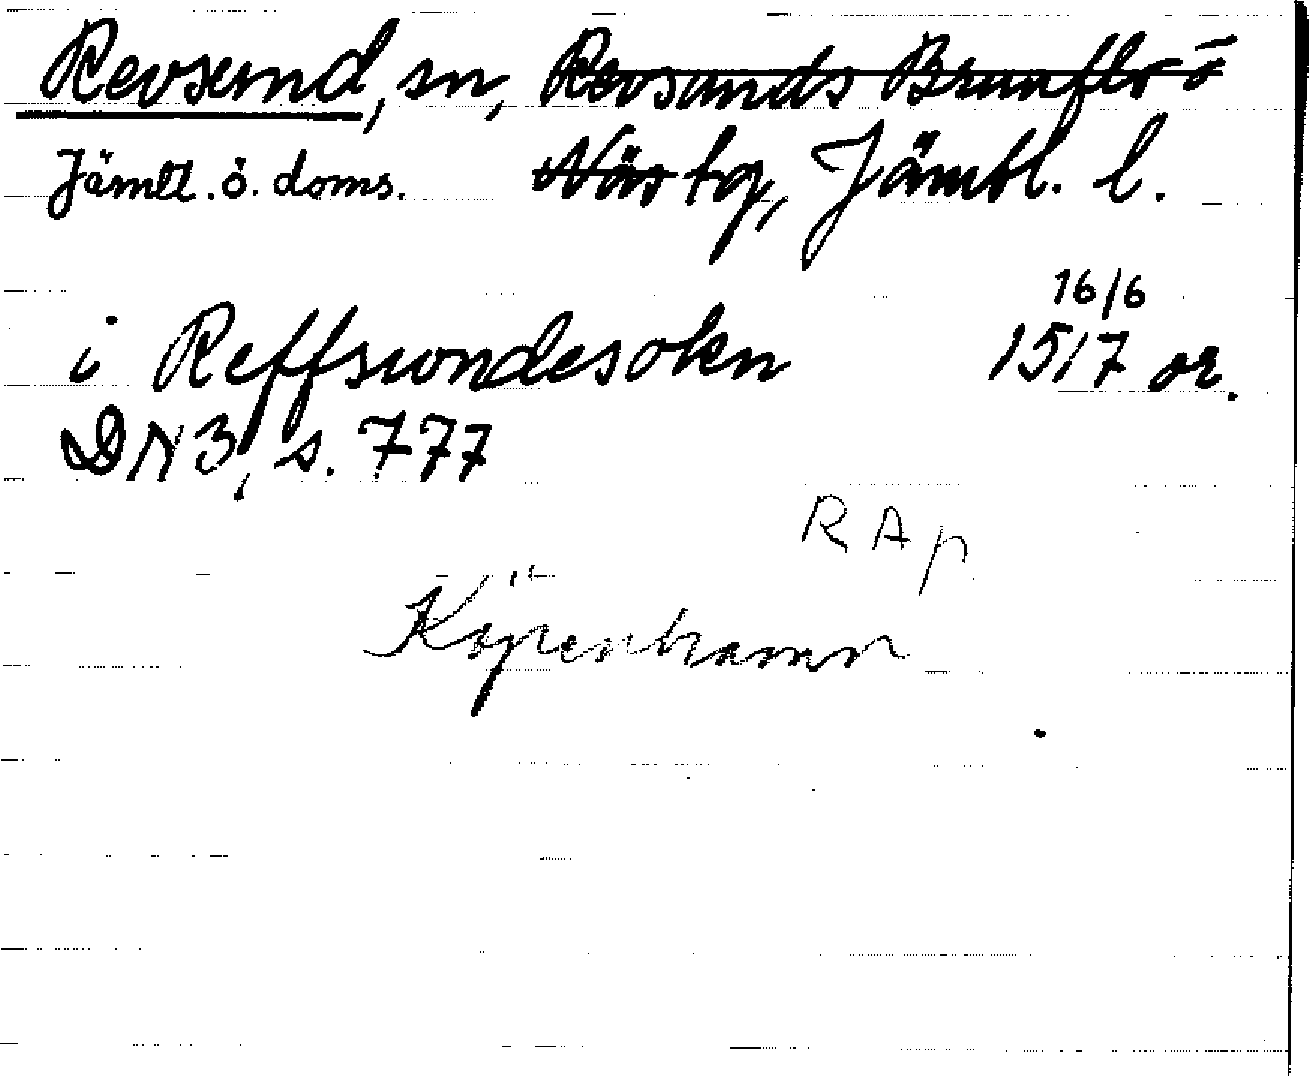 Revsund, sn, Revsunds Brunflo o
Jämtl. ö. doms. Näs tg, Jämtl. l.
16/6
i Reffswndesokn 1517 or.
DN 3, s. 777
RAp
Köpenhamn